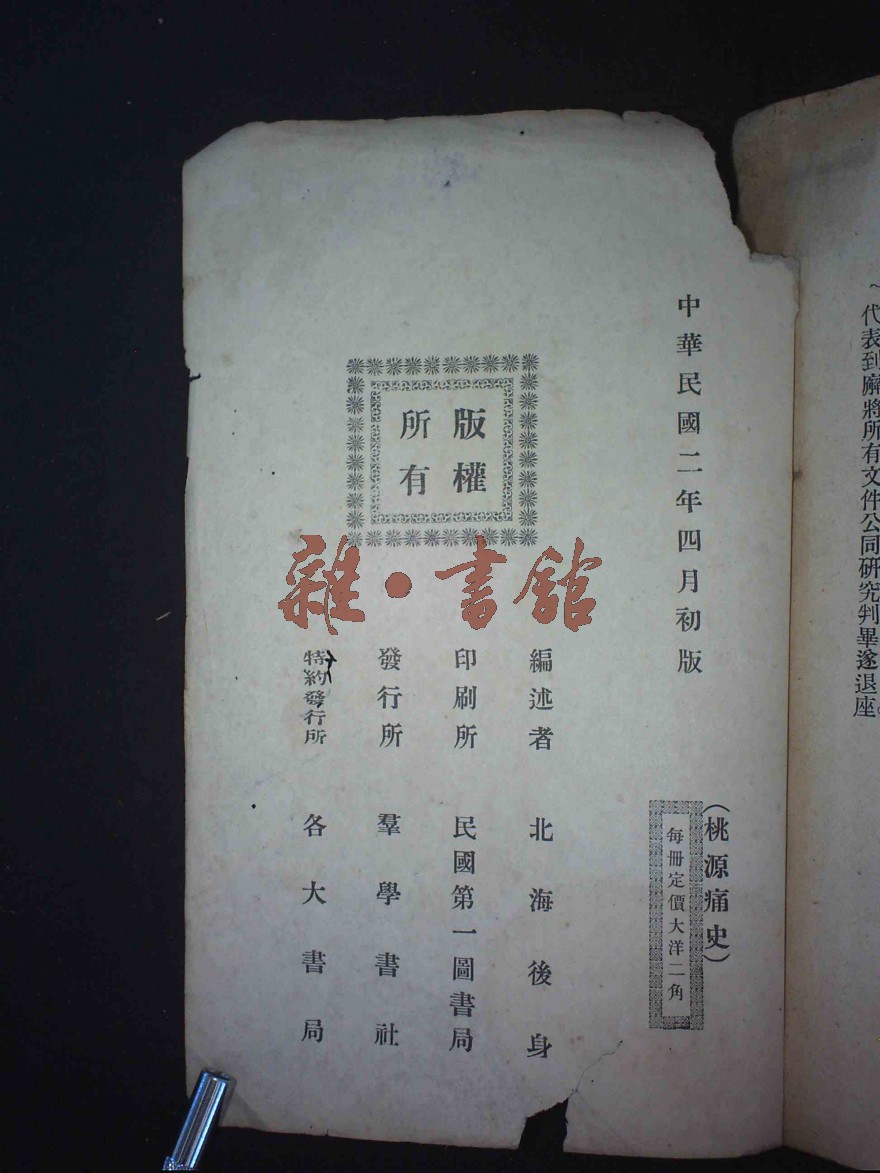 代表到廨將所有文件公同研究判畢遂退座
中華民國二年四月初版
(桃源痛史)
每冊定價大洋二角
版權
所有
編述者 北海後身
印刷所 民國第一圖書局
發行所 羣學書社
特約發行所 各大書局
雜·書館